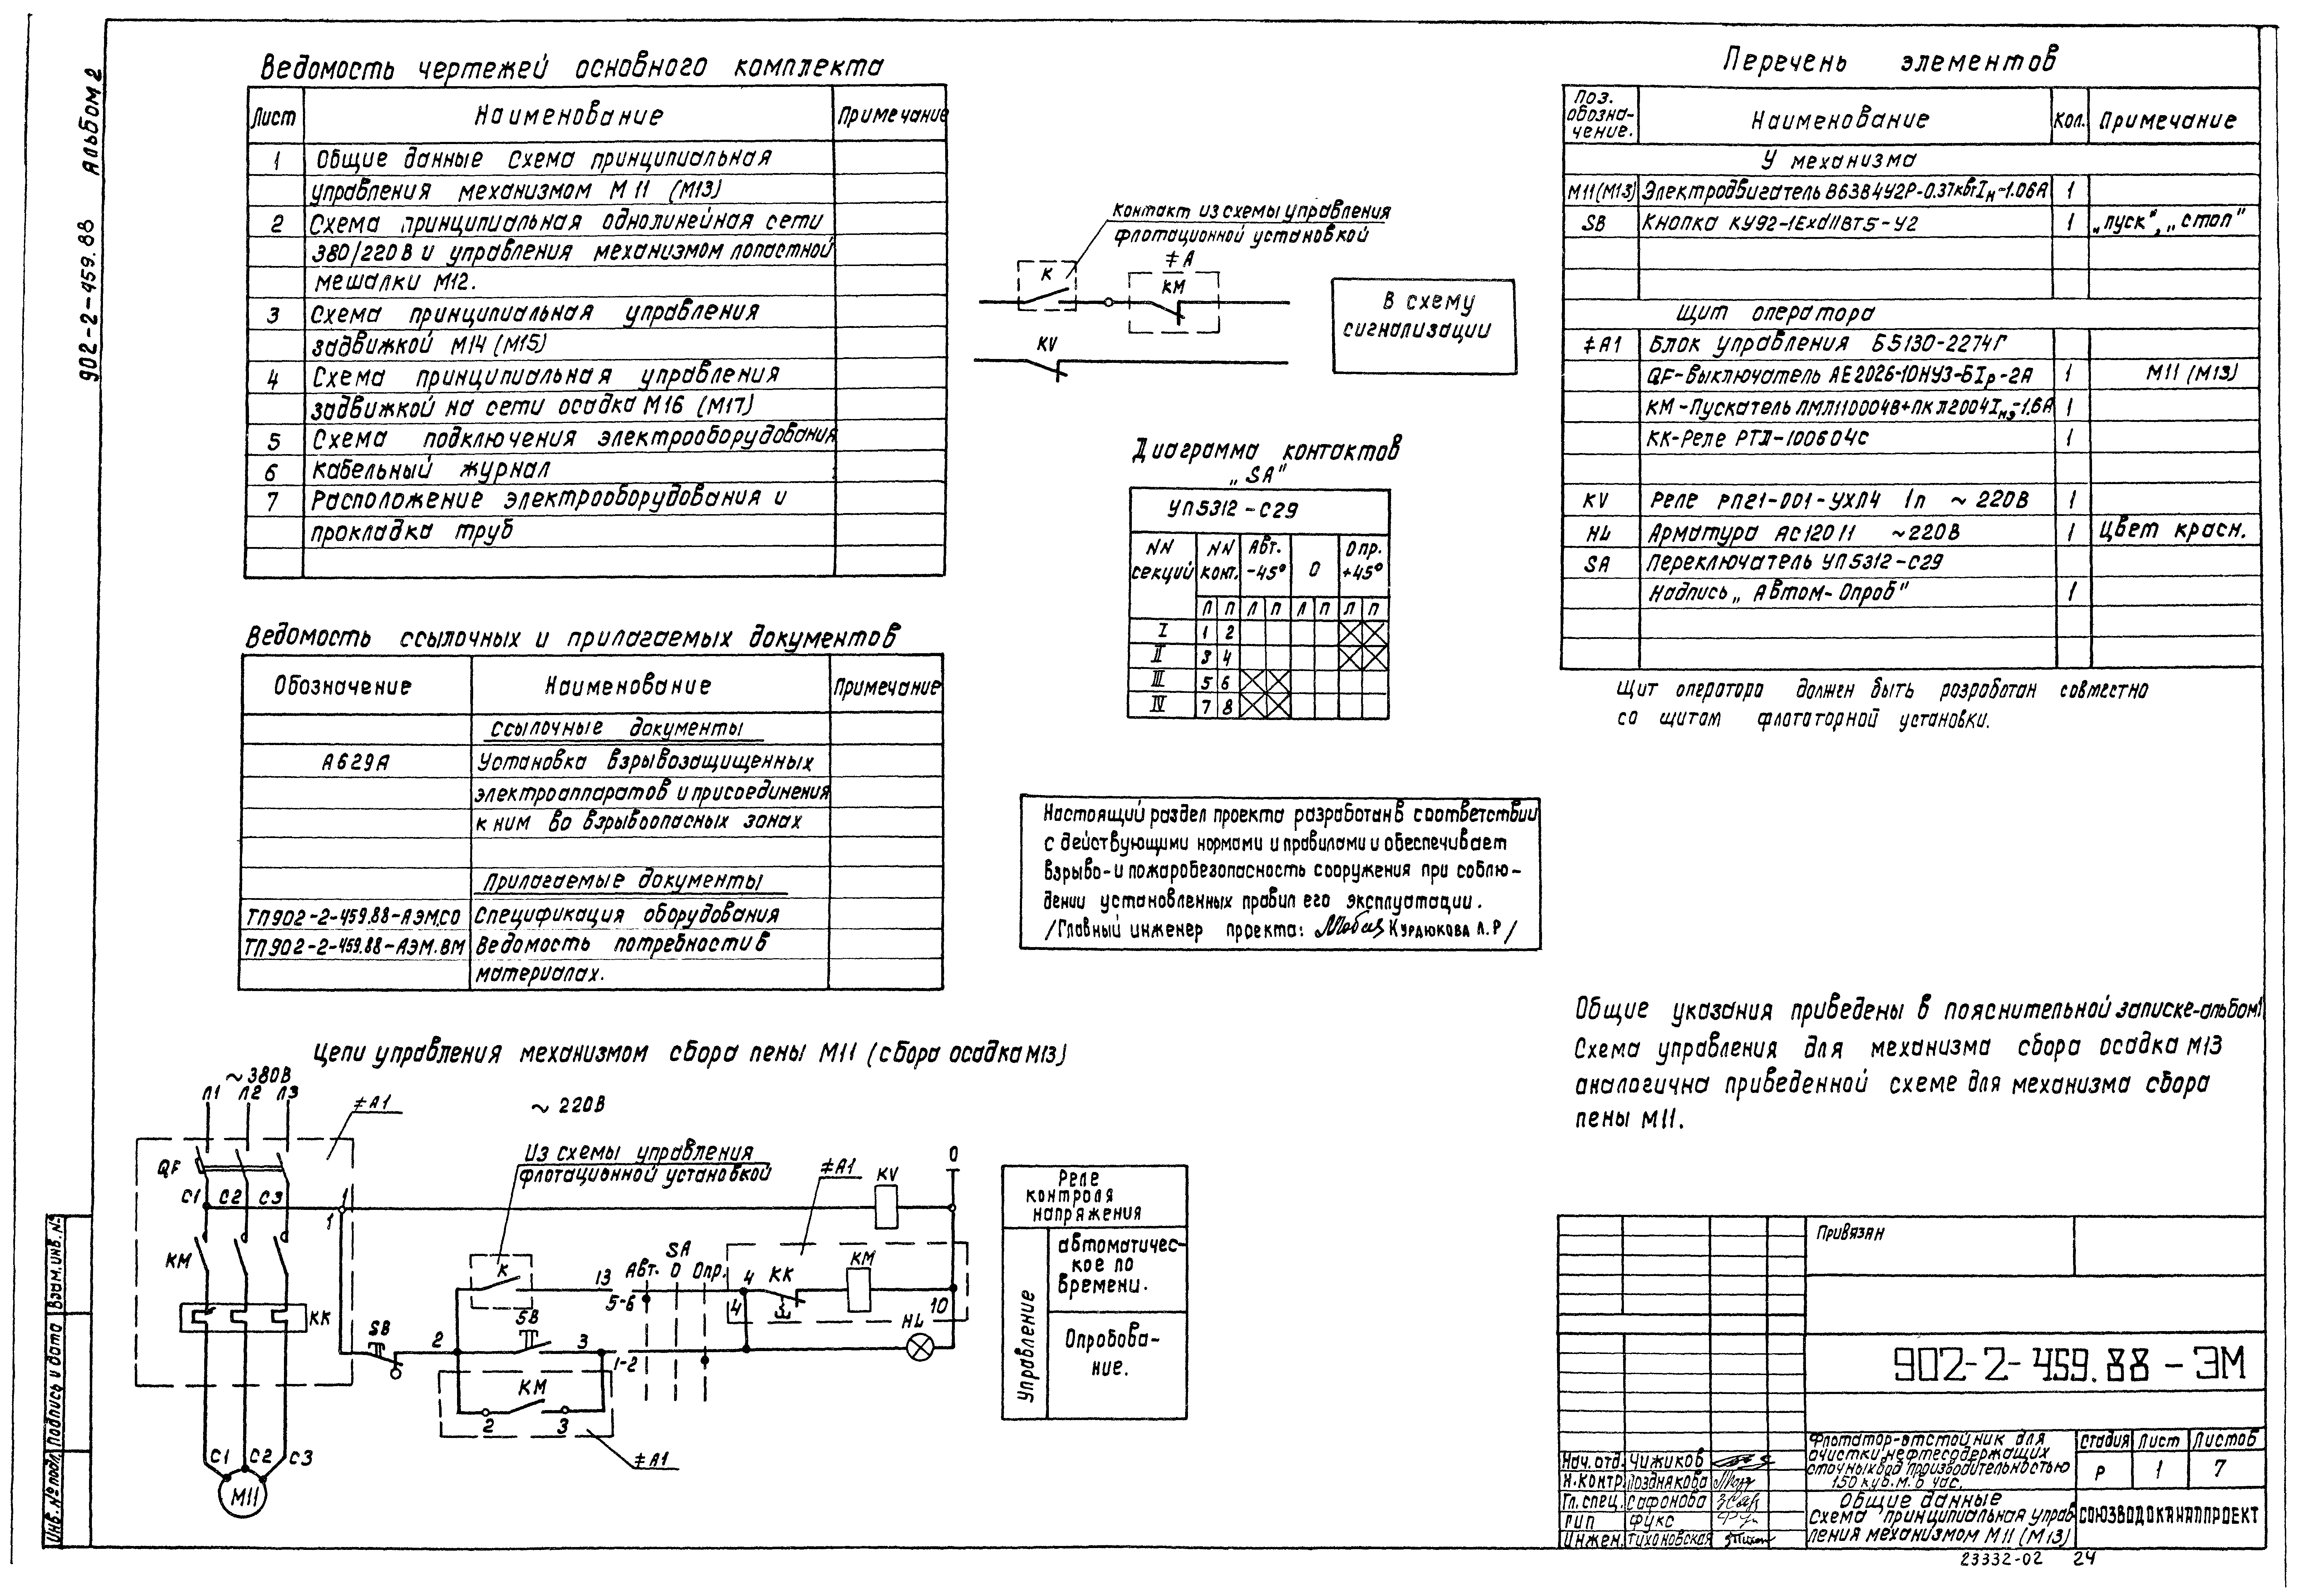 902-2-459.88 Альбом 2
Ведомость чертежей основного комплекта
Лист Наименование Примечание
1 Общие данные Схема принципиальная
управления механизмом М11 (М13)
2 Схема принципиальная однолинейная сети
380/220В и управления механизмом лопастной
мешалки М12.
3 Схема принципиальная управления
задвижкой М14 (М15)
4 Схема принципиальная управления
задвижкой на сети осадка М16 (М17)
5 Схема подключения электрооборудования
6 Кабельный журнал
7 Расположение электрооборудования и
прокладка труб
Ведомость ссылочных и прилагаемых документов
Обозначение Наименование Примечание
Ссылочные документы
А629А Установка взрывозащищенных
электроаппаратов и присоединения
к ним во взрывоопасных зонах
Прилагаемые документы
ТП902-2-459.88-АЭМ.СО Спецификация оборудования
ТП902-2-459.88-АЭМ.ВМ Ведомость потребности в
материалах.
Контакт из схемы управления
флотационной установкой
К
≠А
КМ
KV
В схему
сигнализации
Диаграмма контактов
„SA"
УП5312-С29
NN секций
NN конт.
Авт. -45°
0
Опр. +45°
Л П Л П Л П Л П
I 1 2
II 3 4
III 5 6
IV 7 8
Настоящий раздел проекта разработан в соответствии
с действующими нормами и правилами и обеспечивает
взрыво- и пожаробезопасность сооружения при соблю-
дении установленных правил его эксплуатации.
/Главный инженер проекта: Курдюкова Л.Р/
Перечень элементов
Поз. обозна-чение. Наименование Кол. Примечание
У механизма
М11(М13) Электродвигатель В63В4У2Р-0.37кВт Iн-1.06А 1
SB Кнопка КУ92-1ЕхdIIВТ5-У2 1 „пуск", „стоп"
Щит оператора
≠А1 Блок управления Б5130-2274Г
QF-Выключатель АЕ2026-10НУ3-Б Iр-2А 1 М11 (М13)
КМ-Пускатель ПМЛ110004В+ПКЛ2004 Iнэ-1.6А 1
КК-Реле РТЛ-100604С 1
KV Реле РП21-001-УХЛ4 1п ~220В 1
HL Арматура АС12011 ~220В 1 Цвет красн.
SA Переключатель УП5312-С29
Надпись „Автом-Опроб" 1
Щит оператора должен быть разработан совместно
со щитом флотаторной установки.
Общие указания приведены в пояснительной записке-альбом1
Схема управления для механизма сбора осадка М13
аналогична приведенной схеме для механизма сбора
пены М11.
Цепи управления механизмом сбора пены М11 (сбора осадка М13)
~380В
Л1 Л2 Л3
≠А1
~220В
QF
С1 С2 С3
1
1
КМ
КК
С1 С2 С3
М11
Из схемы управления
флотационной установкой
≠А1
KV
0
К
13
5-6
SA
Авт. 0 Опр.
4
4
КК
КМ
10
HL
SB
2
SB
3
1-2
КМ
2
3
≠А1
Реле
контроля
напряжения
Управление
автоматичес-
кое по
времени.
Опробова-
ние.
Привязан
902-2-459.88-ЭМ
Флотатор-отстойник для
очистки нефтесодержащих
сточных вод производительностью
150 куб.м. в час.
Стадия Лист Листов
Р 1 7
Общие данные
Схема принципиальная управ
ления механизмом М11 (М13)
СОЮЗВОДОКАНАЛПРОЕКТ
Нач.отд. Чижиков
Н.контр. Позднякова
Гл.спец. Сафонова
ГИП Фукс
Инжен. Тихоновская
Инв.№ подл. Подпись и дата Взам.инв.№
23332-02 24